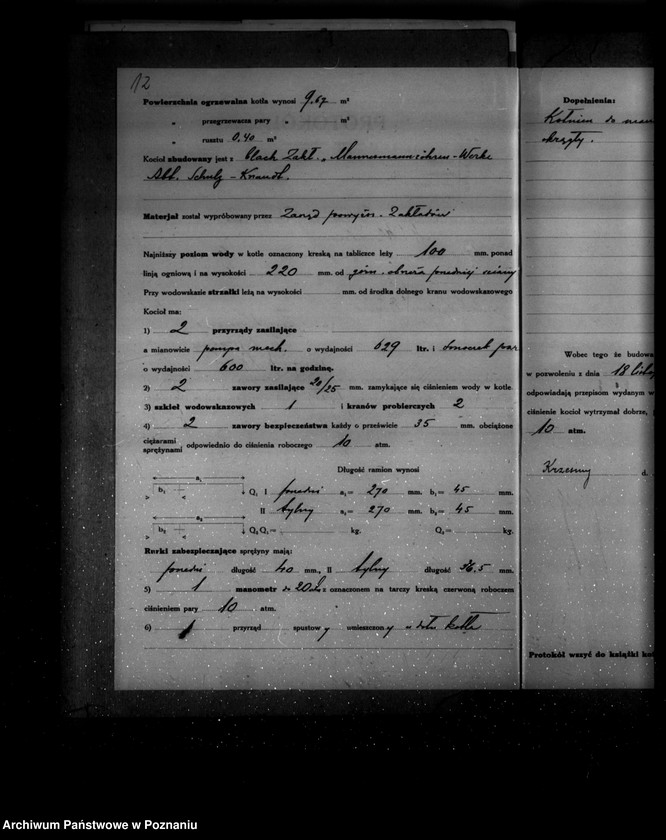 12
Powierzchnia ogrzewalna kotła wynosi 9.67 m²
„ przegrzewacza pary „ m²
„ rusztu 0.40 m²
Kocioł zbudowany jest z blach Zakł. „Mannesmannröhren-Werke
Abt. Schulz-Knaudt.
Materjał został wypróbowany przez Zarząd powyższ. Zakładów
Najniższy poziom wody w kotle oznaczony kreską na tabliczce leży 100 mm. ponad
linją ogniową i na wysokości 220 mm. od górn. obwodu
Przy wodowskazie strzałki leżą na wysokości mm. od środka dolnego kranu wodowskazowego
Kocioł ma:
1) 2 przyrządy zasilające
a mianowicie pompa mech. o wydajności 629 ltr. i
o wydajności 600 ltr. na godzinę.
2) 2 zawory zasilające 20/25 mm. zamykające się ciśnieniem wody w kotle
3) szkieł wodowskazowych 1 i kranów probierczych 2
4) 2 zawory bezpieczeństwa każdy o prześwicie 35 mm. obciążone
ciężarami
sprężynami odpowiednio do ciśnienia roboczego 10 atm.
Długość ramion wynosi
a₁
b₁ Q₁ I przedni a₁= 270 mm. b₁= 45 mm.
II tylny a₂= 270 mm. b₂= 45 mm.
a₂
b₂ Q₂ Q₁= kg. Q₂= kg.
Rurki zabezpieczające sprężyny mają:
przedni długość 40 mm., II tylny długość 36,5 mm.
5) 1 manometr do 20 z oznaczonem na tarczy kreską czerwoną roboczem
ciśnieniem pary 10 atm.
6) 1 przyrząd spustowy umieszczony u dołu kotła
Dopełnienia:
Kołnierz do
okrągły.
Wobec tego że budowa
w pozwoleniu z dnia 18
odpowiadają przepisom wydanym w
ciśnienie kocioł wytrzymał dobrze,
10 atm.
Krzesiny d.
Protokół wszyć do książki
Archiwum Państwowe w Poznaniu